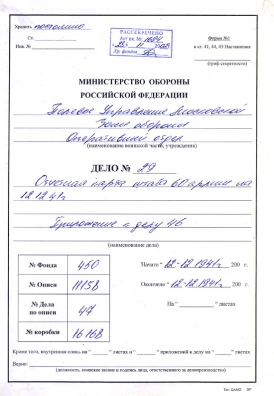 Хранить постоянно
РАССЕКРЕЧЕНО
Форма №1
Ст.
Акт вх. № 1684
к ст. 41, 44, 45 Наставления
Инв. №
(гриф секретности)
МИНИСТЕРСТВО ОБОРОНЫ
РОССИЙСКОЙ ФЕДЕРАЦИИ
Полевое Управление Московской
Зоны обороны
Оперативный отдел
(наименование воинской части, учреждения)
ДЕЛО № 29
Отчетная карта штаба 60 армии на
12.12.41г.
Приложение к делу 46
(наименование дела)
№ Фонда 450
Начато "12-12-1941г. 200 г.
№ Описи 11158
Окончено "12-12-1941г. 200 г.
№ Дела по описи 47
На " " листах
№ коробки 16168
Кроме того, внутренняя опись на " " листах и " " приложений к делу на " " листах.
Верно:
(должность, воинское звание и подпись лица, ответственного за делопроизводство)